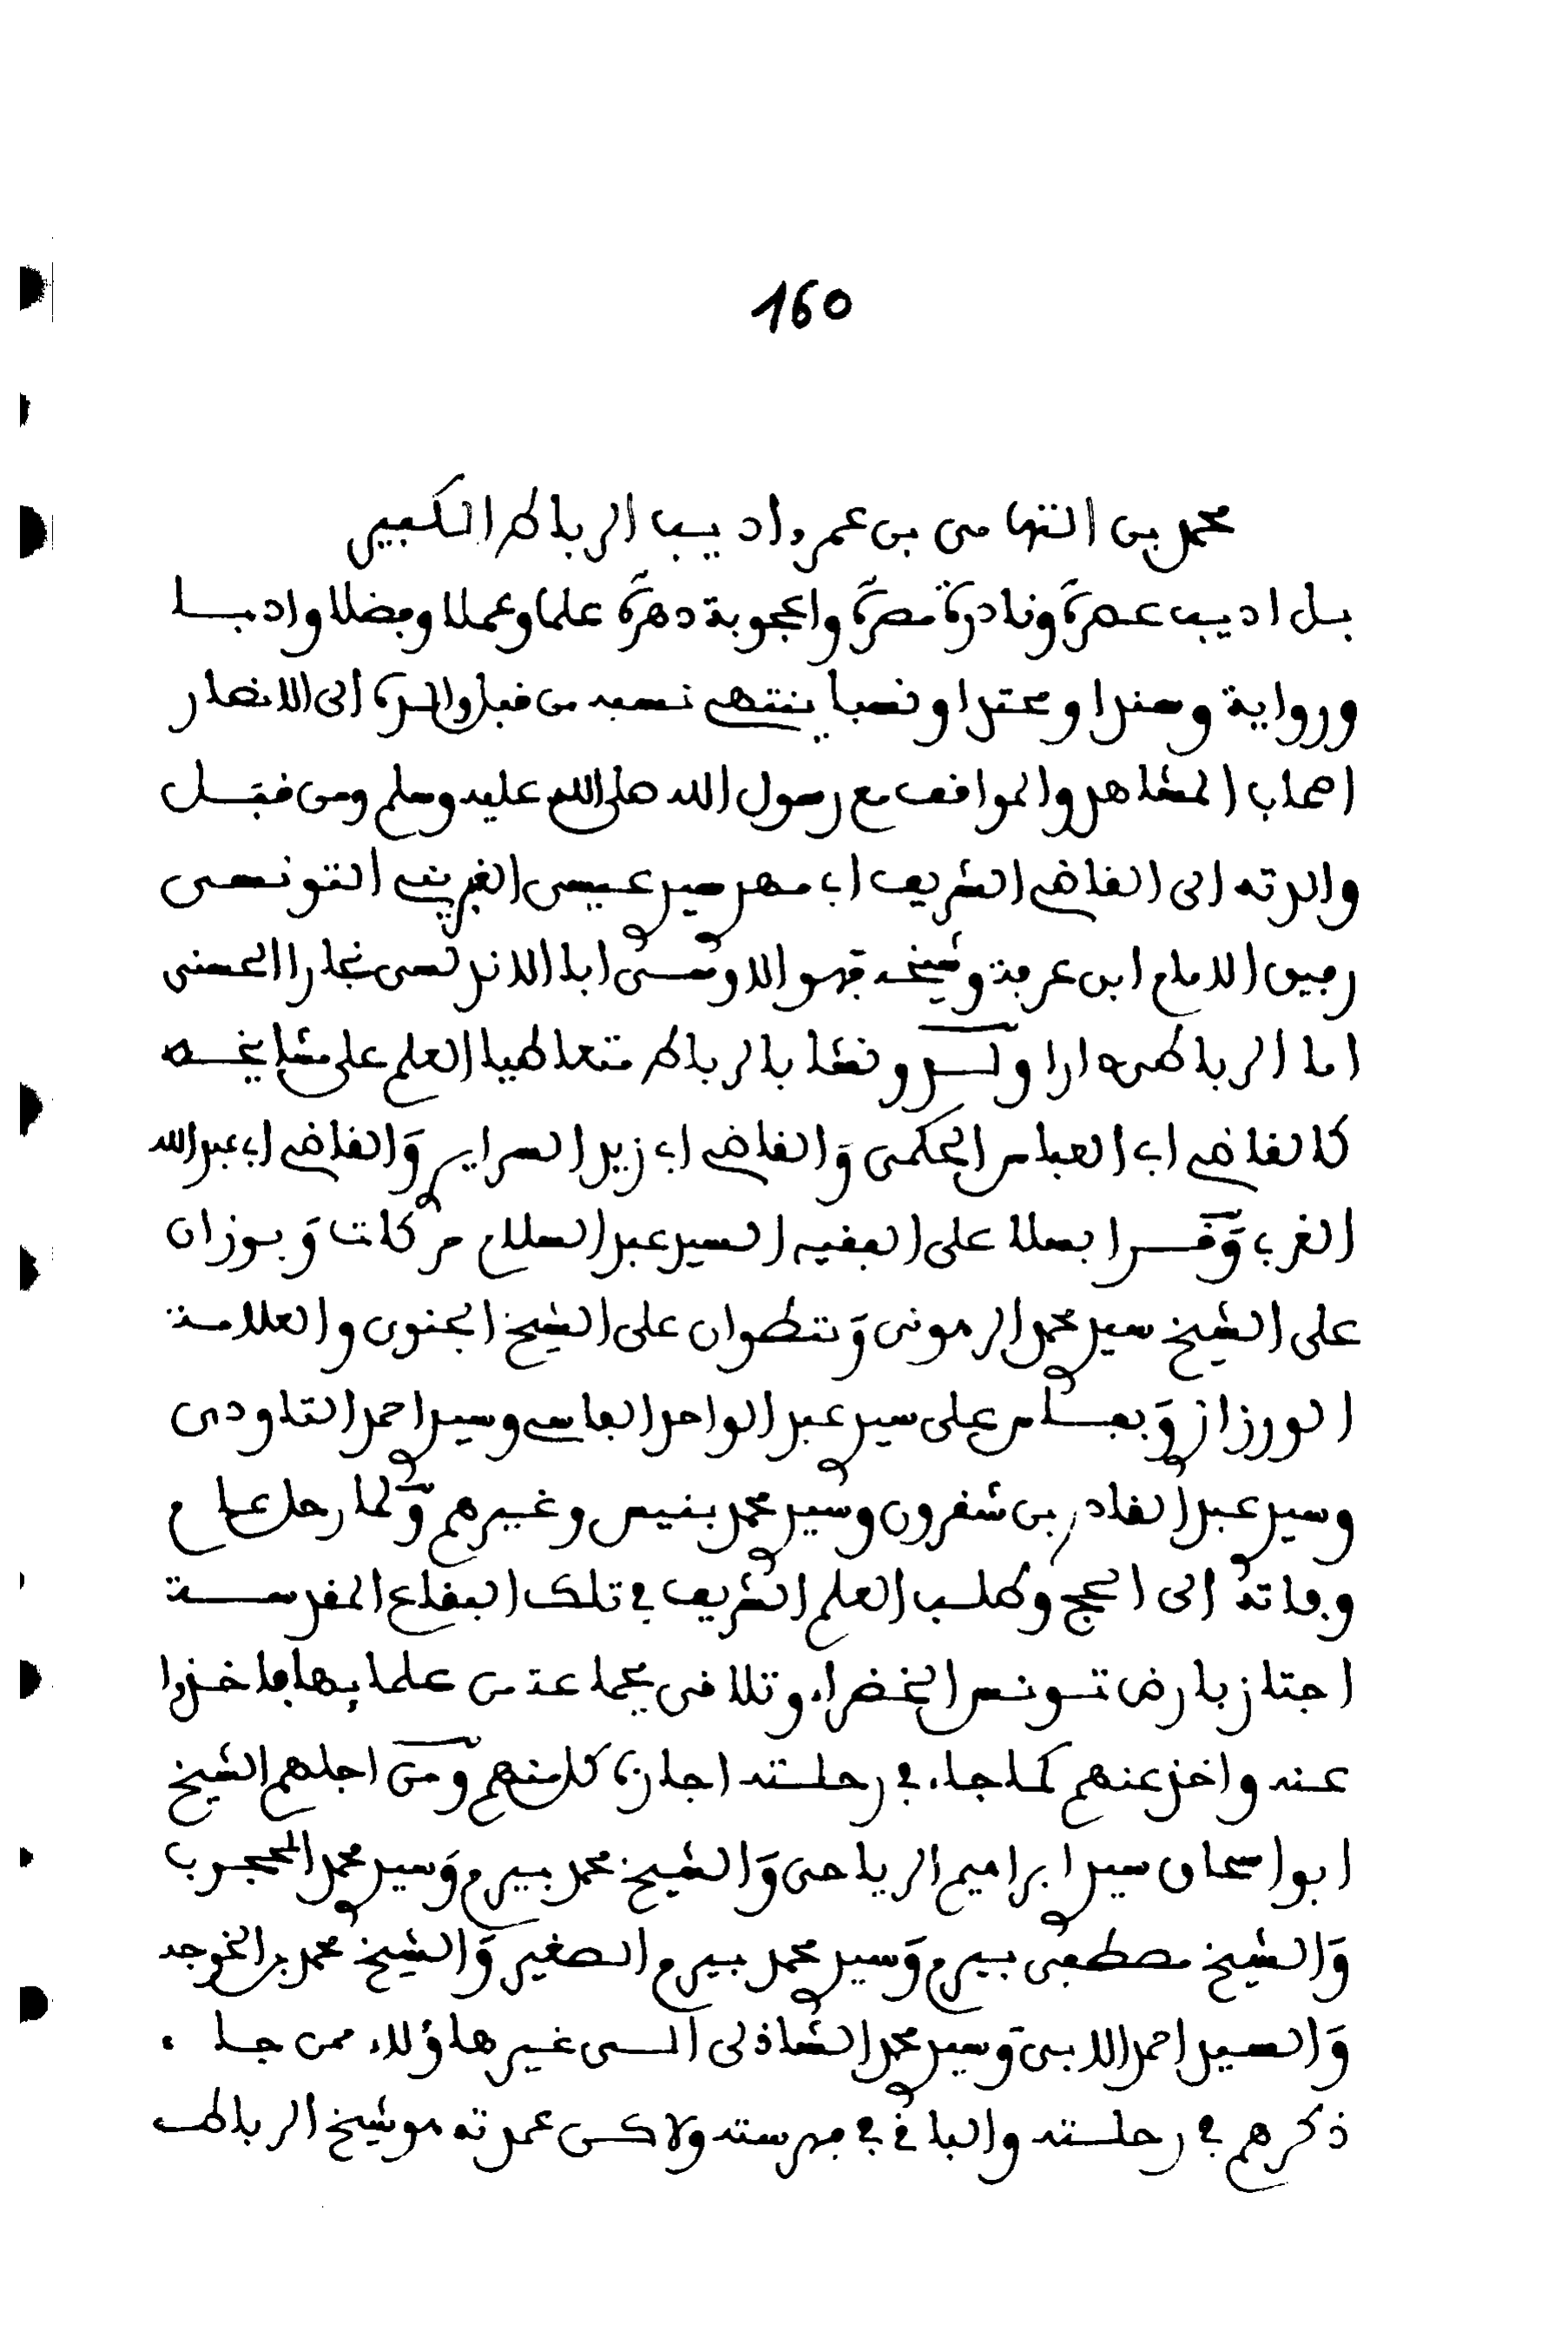 160
محمد بن التهامي بن عمرو اديب الرباط الكبير
بل اديب عصره ونادرة مصره واعجوبة دهره علما وعملا وفضلا وادبا
ورواية وسندا ومحتدا ونسبا ينتهي نسبه من قبل والده الى الانصار
اصحاب المشاهد والمواقف مع رسول الله صلى الله عليه وسلم ومن قبل
والدته الى القاضي الشريف ابي مهدي سيدي عيسى الغبريني التونسي
رفيق الامام ابن عرفة وشيخه فهو الاوسي ابا الاندلسي نجارا الحسني
اما الرباطي دارا ولد ونشا بالرباط متعاطيا العلم على مشايخه
كالقاضي ابي العباس الحكمي وَالقاضي ابي زيد السرايري وَالقاضي ابي عبد الله
الغربي وَقرا بسلا على الفقيه السيد عبد السلام حركات وَبوزان
على الشيخ سيدي محمد الرهوني وَبتطوان على الشيخ الجنوي والعلامة
الورزازي وَبفاس على سيدي عبد الواحد الفاسي وسيدي احمد التاودي
وسيدي عبد القادر بن شقرون وسيدي محمد بنيس وغيرهم وَلما رحل عام
وفاته الى الحج وطلب العلم الشريف في تلك البقاع المقدسة
اجتاز بارض تونس الخضراء وتلاقى بجماعة من علمايها فاخذوا
عنه واخذ عنهم كما جاء في رحلته اجازه كل منهم ومن اجلهم الشيخ
ابو اسحاق سيدي ابراهيم الرياحي وَالشيخ محمد بيرم وَسيدي محمد المحجوب
وَالشيخ مصطفى بيرم وَسيدي محمد بيرم الصغير وَالشيخ محمد بن الخوجه
وَالسيد احمد الابي وَسيدي محمد الشاذلي الى غير هاؤلاء ممن جاء
ذكرهم في رحلته والباقي في فهرسته ولاكن عمدته هو شيخ الرباط